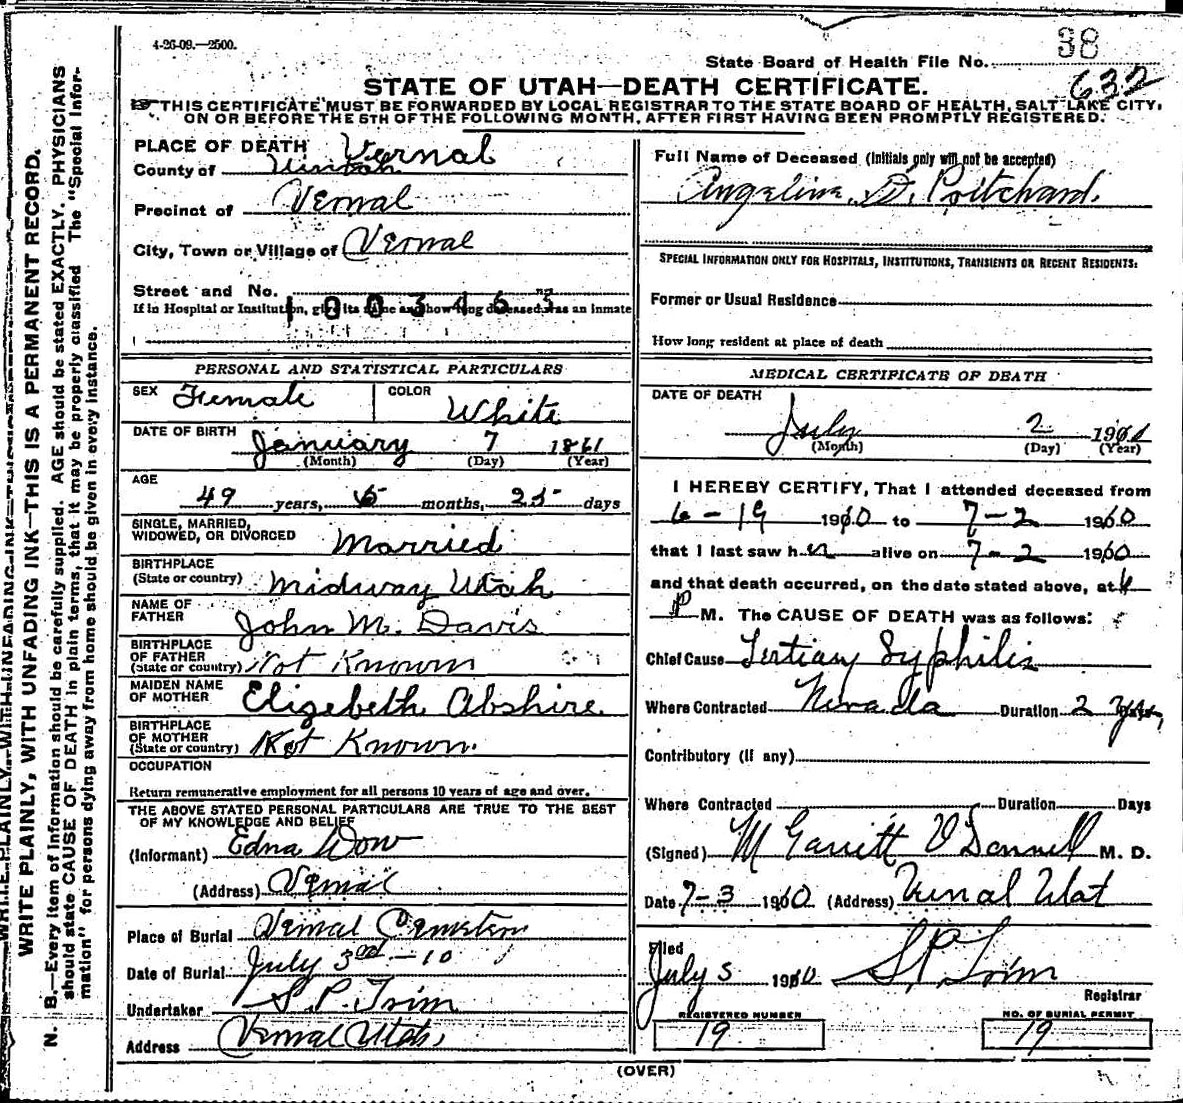 4-26-09.—2500.
38
State Board of Health File No.
632
STATE OF UTAH—DEATH CERTIFICATE.
THIS CERTIFICATE MUST BE FORWARDED BY LOCAL REGISTRAR TO THE STATE BOARD OF HEALTH, SALT LAKE CITY,
ON OR BEFORE THE 5TH OF THE FOLLOWING MONTH, AFTER FIRST HAVING BEEN PROMPTLY REGISTERED.
WRITE PLAINLY, WITH UNFADING INK—THIS IS A PERMANENT RECORD.
N. B.—Every item of information should be carefully supplied. AGE should be stated EXACTLY. PHYSICIANS
should state CAUSE OF DEATH in plain terms, that it may be properly classified The "Special Infor-
mation" for persons dying away from home should be given in every instance.
PLACE OF DEATH Vernal
County of Uintah
Precinct of Vernal
City, Town or Village of Vernal
Street and No.
1003463
If in Hospital or Institution, give its name and how long deceased was an inmate
PERSONAL AND STATISTICAL PARTICULARS
SEX Female COLOR White
DATE OF BIRTH January 7 1861
(Month) (Day) (Year)
AGE
49 years, 5 months, 25 days
SINGLE, MARRIED,
WIDOWED, OR DIVORCED Married
BIRTHPLACE
(State or country) Midway Utah
NAME OF
FATHER John M. Davis
BIRTHPLACE
OF FATHER
(State or country) Not Known
MAIDEN NAME
OF MOTHER Elizebeth Abshire
BIRTHPLACE
OF MOTHER
(State or country) Not Known.
OCCUPATION
Return remunerative employment for all persons 10 years of age and over.
THE ABOVE STATED PERSONAL PARTICULARS ARE TRUE TO THE BEST
OF MY KNOWLEDGE AND BELIEF
(Informant) Edna
(Address) Vernal
Place of Burial Vernal Cemetery
Date of Burial July 3rd—10
Undertaker S. P. Trim
Address Vernal Utah
Full Name of Deceased (Initials only will not be accepted)
Angeline D. Pritchard.
SPECIAL INFORMATION ONLY FOR HOSPITALS, INSTITUTIONS, TRANSIENTS OR RECENT RESIDENTS:
Former or Usual Residence
How long resident at place of death
MEDICAL CERTIFICATE OF DEATH
DATE OF DEATH
July 2 1910
(Month) (Day) (Year)
I HEREBY CERTIFY, That I attended deceased from
6-19 1910 to 7-2 1910
that I last saw her alive on 7-2 1910
and that death occurred, on the date stated above, at
P M. The CAUSE OF DEATH was as follows:
Chief Cause Tertiary Syphilis
Where Contracted Nevada Duration 2 yrs,
Contributory (if any)
Where Contracted Duration Days
(Signed) M Garritt O'Donnell M. D.
Date 7-3 1910 (Address) Vernal Utah
Filed
July 5 1910 S P Trim
Registrar
REGISTERED NUMBER NO. OF BURIAL PERMIT
19 19
(OVER)